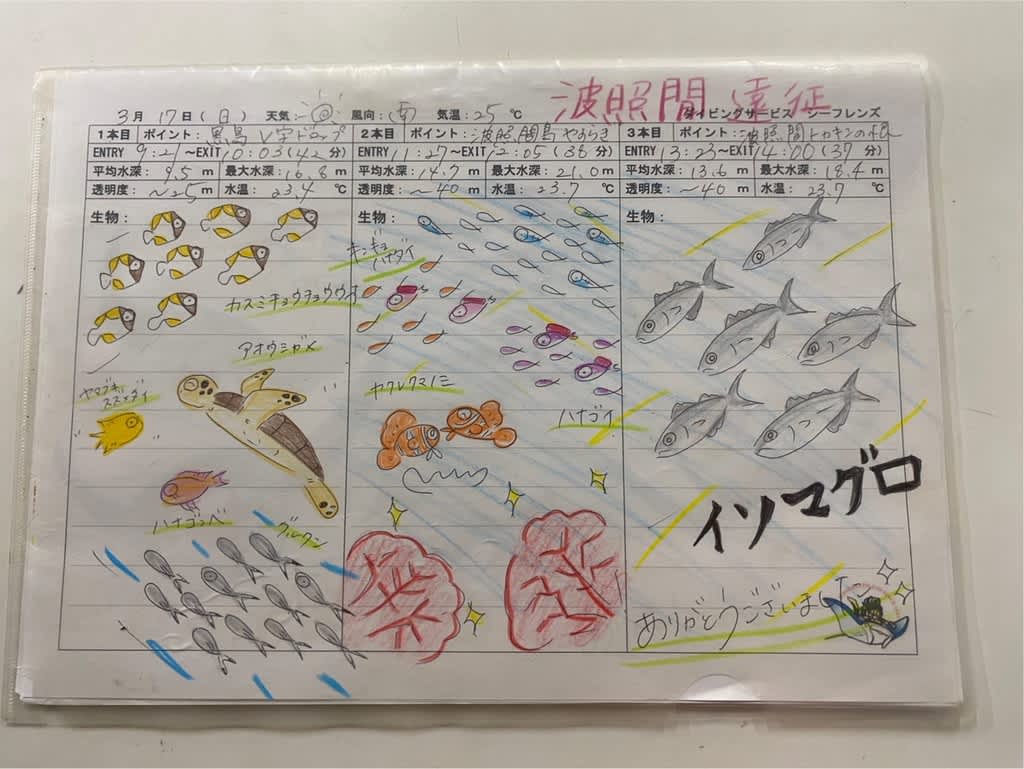 波照間 遠征
3月 17日(日) 天気: 風向:(南) 気温:25℃ ダイビングサービス シーフレンズ
1本目 ポイント: 黒島V字ドロップ 2本目 ポイント: 波照間島やぐらさき 3本目 ポイント: 波照間トロキンの根
ENTRY 9:21~EXIT10:03(42分) ENTRY 11:27~EXIT12:05(38分) ENTRY 13:23~EXIT14:00(37分)
平均水深: 9.5 m 最大水深: 16.8 m 平均水深: 14.7 m 最大水深: 21.0 m 平均水深: 13.6 m 最大水深: 18.4 m
透明度: ~25m 水温: 23.4 ℃ 透明度: ~40m 水温: 23.7 ℃ 透明度: ~40m 水温: 23.7 ℃
生物: 生物: 生物:
キンギョ
ハナダイ
カスミチョウチョウウオ
アオウミガメ
ヤマブキ
スズメダイ
ヤクシマクマノミ
ハナゴイ
イソマグロ
ハナゴンベ
グルクン
ありがとうございました